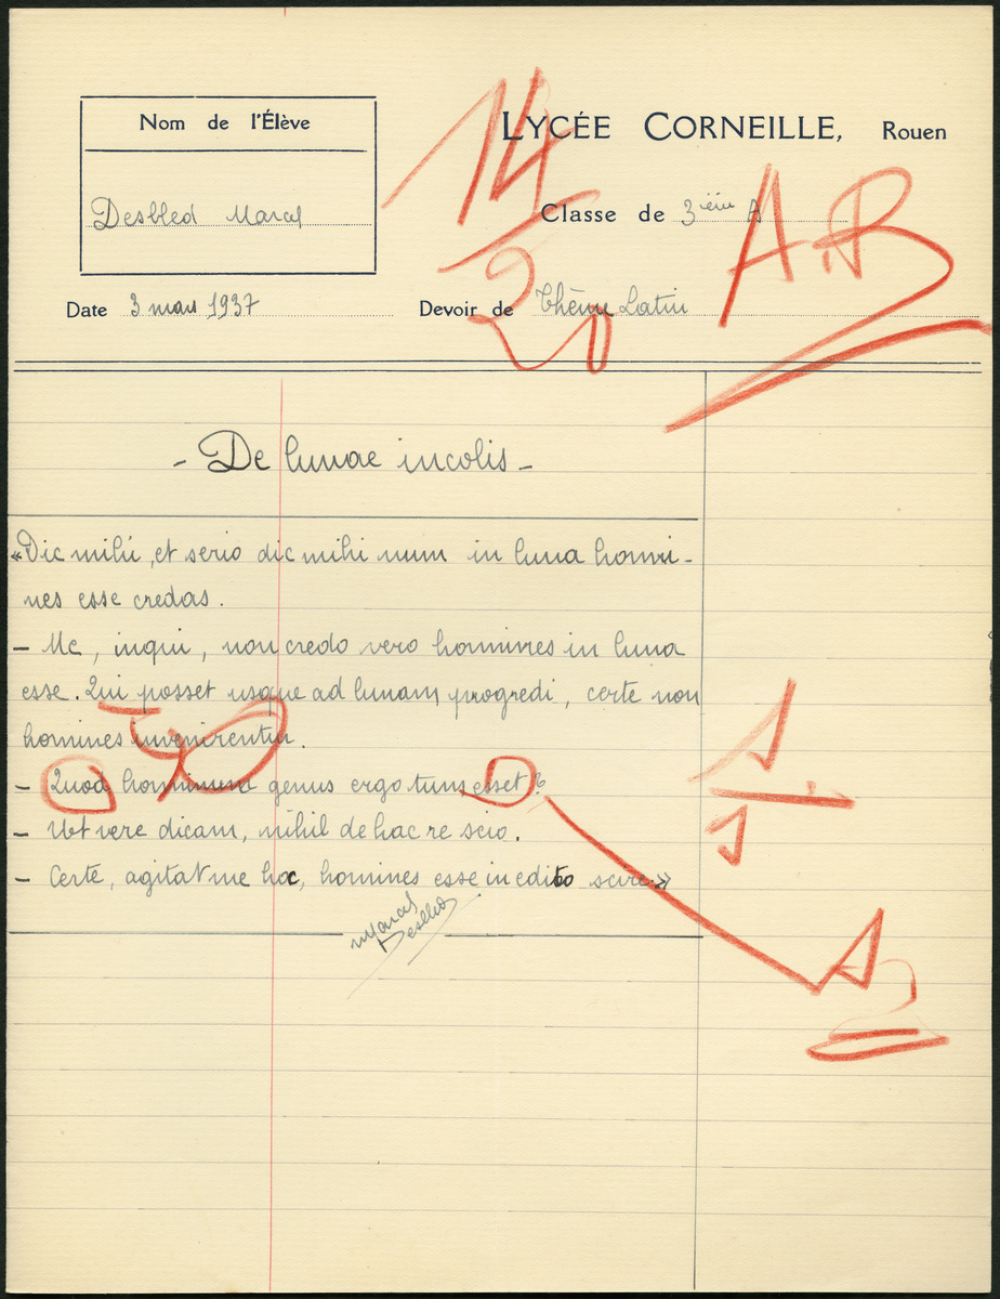 Nom de l'Élève
LYCÉE CORNEILLE, Rouen
14
20
Classe de 3ème A
A.B
Desbled Marcel
Date 3 mars 1937
Devoir de Thème Latin
- De lunae incolis -
«Dic mihi, et serio dic mihi num in luna homi-
nes esse credas.
- Me, inqui, non credo vero homines in luna
esse. Qui posset usque ad lunam progredi, certe non
homines invenirentur.
- Quod hominum genus ergo tum esset?
- Ut vere dicam, nihil de hac re scio.
- Certe, agitat me hoc, homines esse in edito scire»
Marcel
Desbled